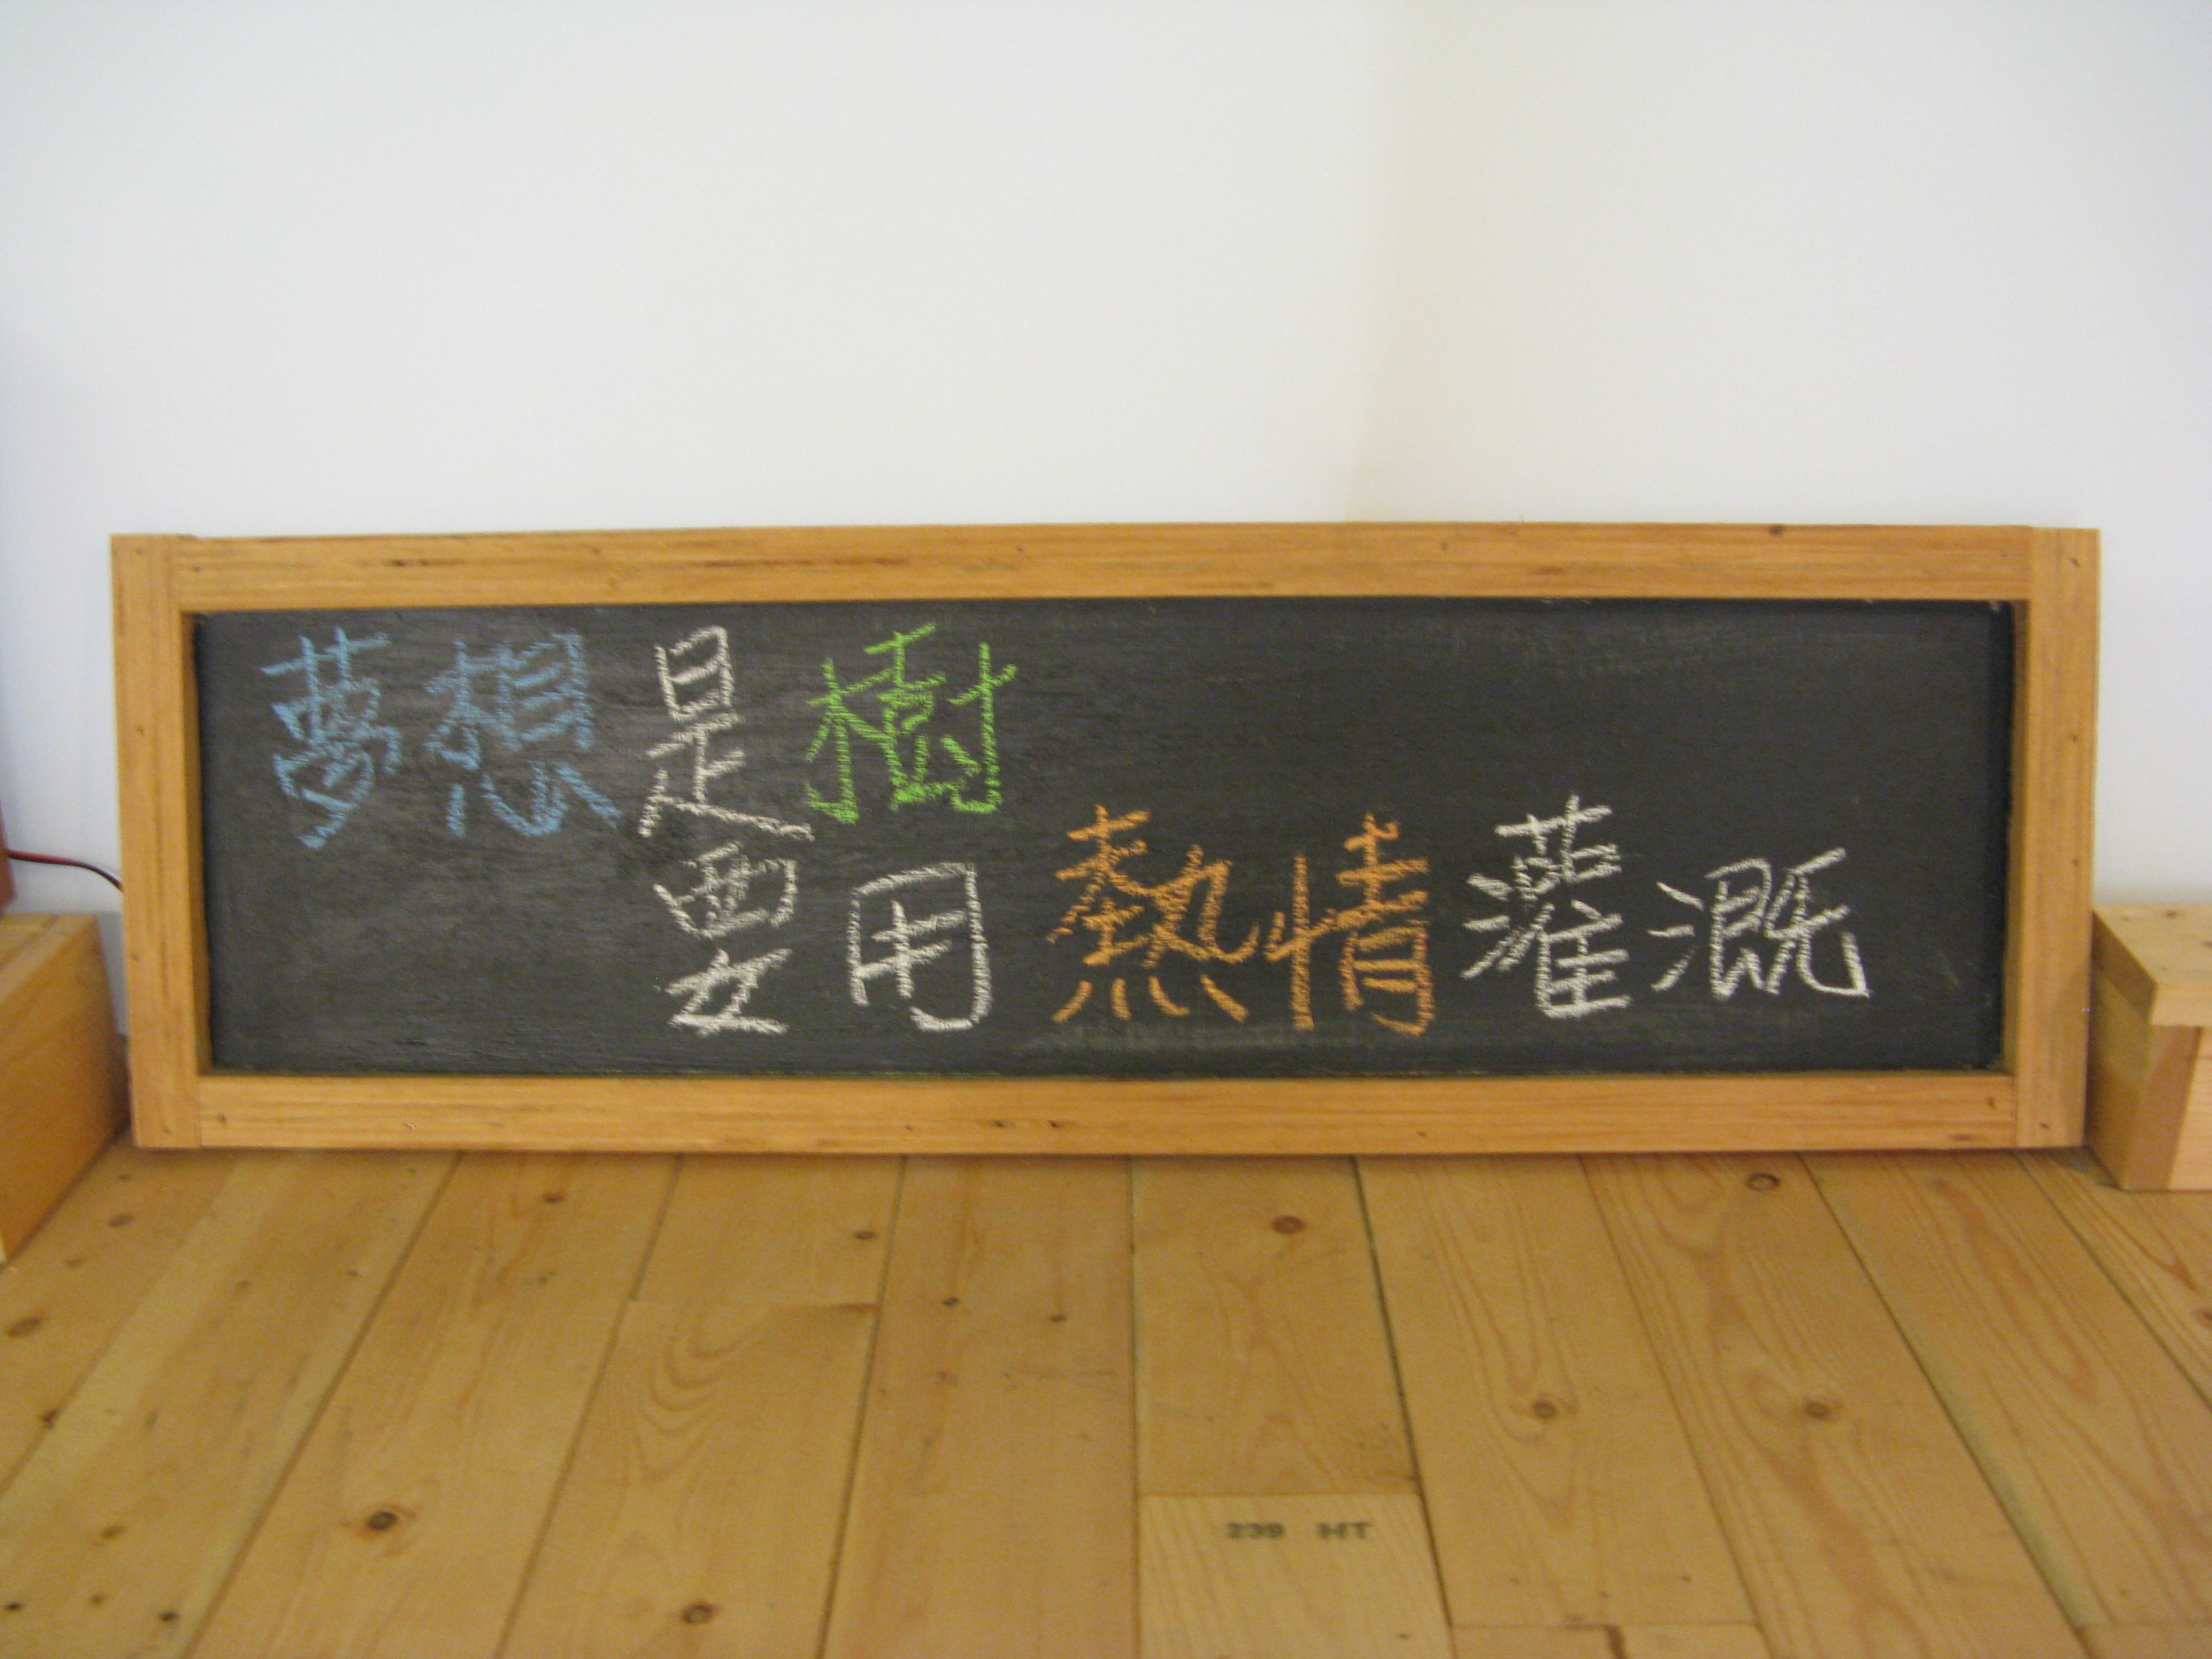 夢想是樹
要用熱情灌溉
239 HT